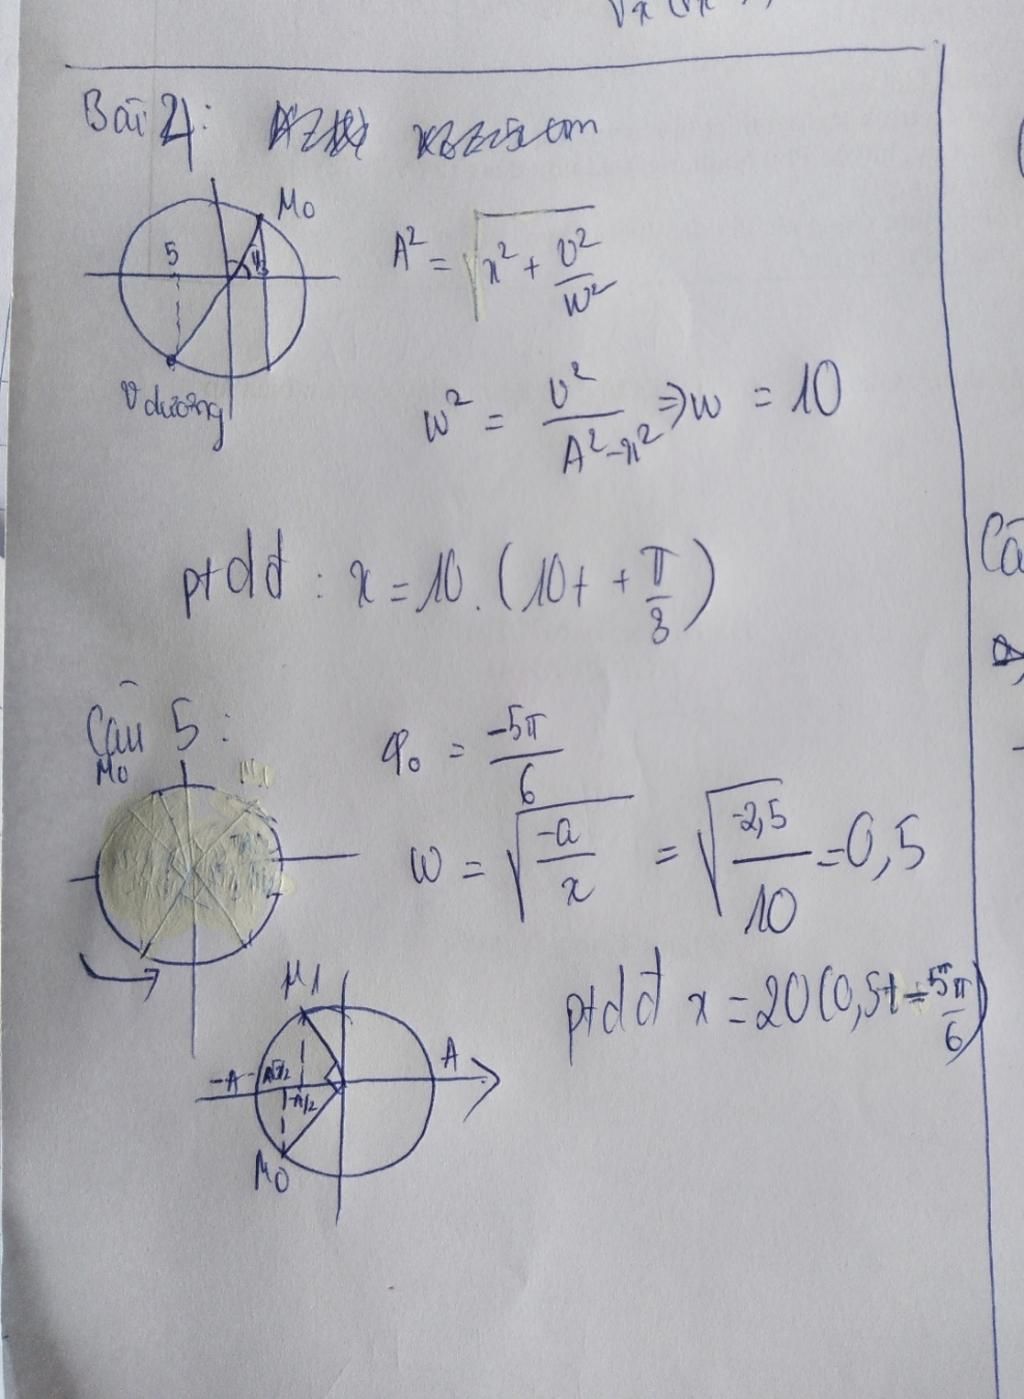 Bài 4:
M₀
5
π/3
V dương
A² = √(x² + v²/w²)
w² = v²/(A²-x²) => w = 10
ptdđ : x = 10.(10t + π/3)
Câu 5:
M₀ M₁
φ₀ = -5π/6
w = √(-a/x) = √(-2,5/10) = 0,5
ptdđ x = 20(0,5t - 5π/6)
M1
-A -A√3/2 -A/2 A
M₀
Câ